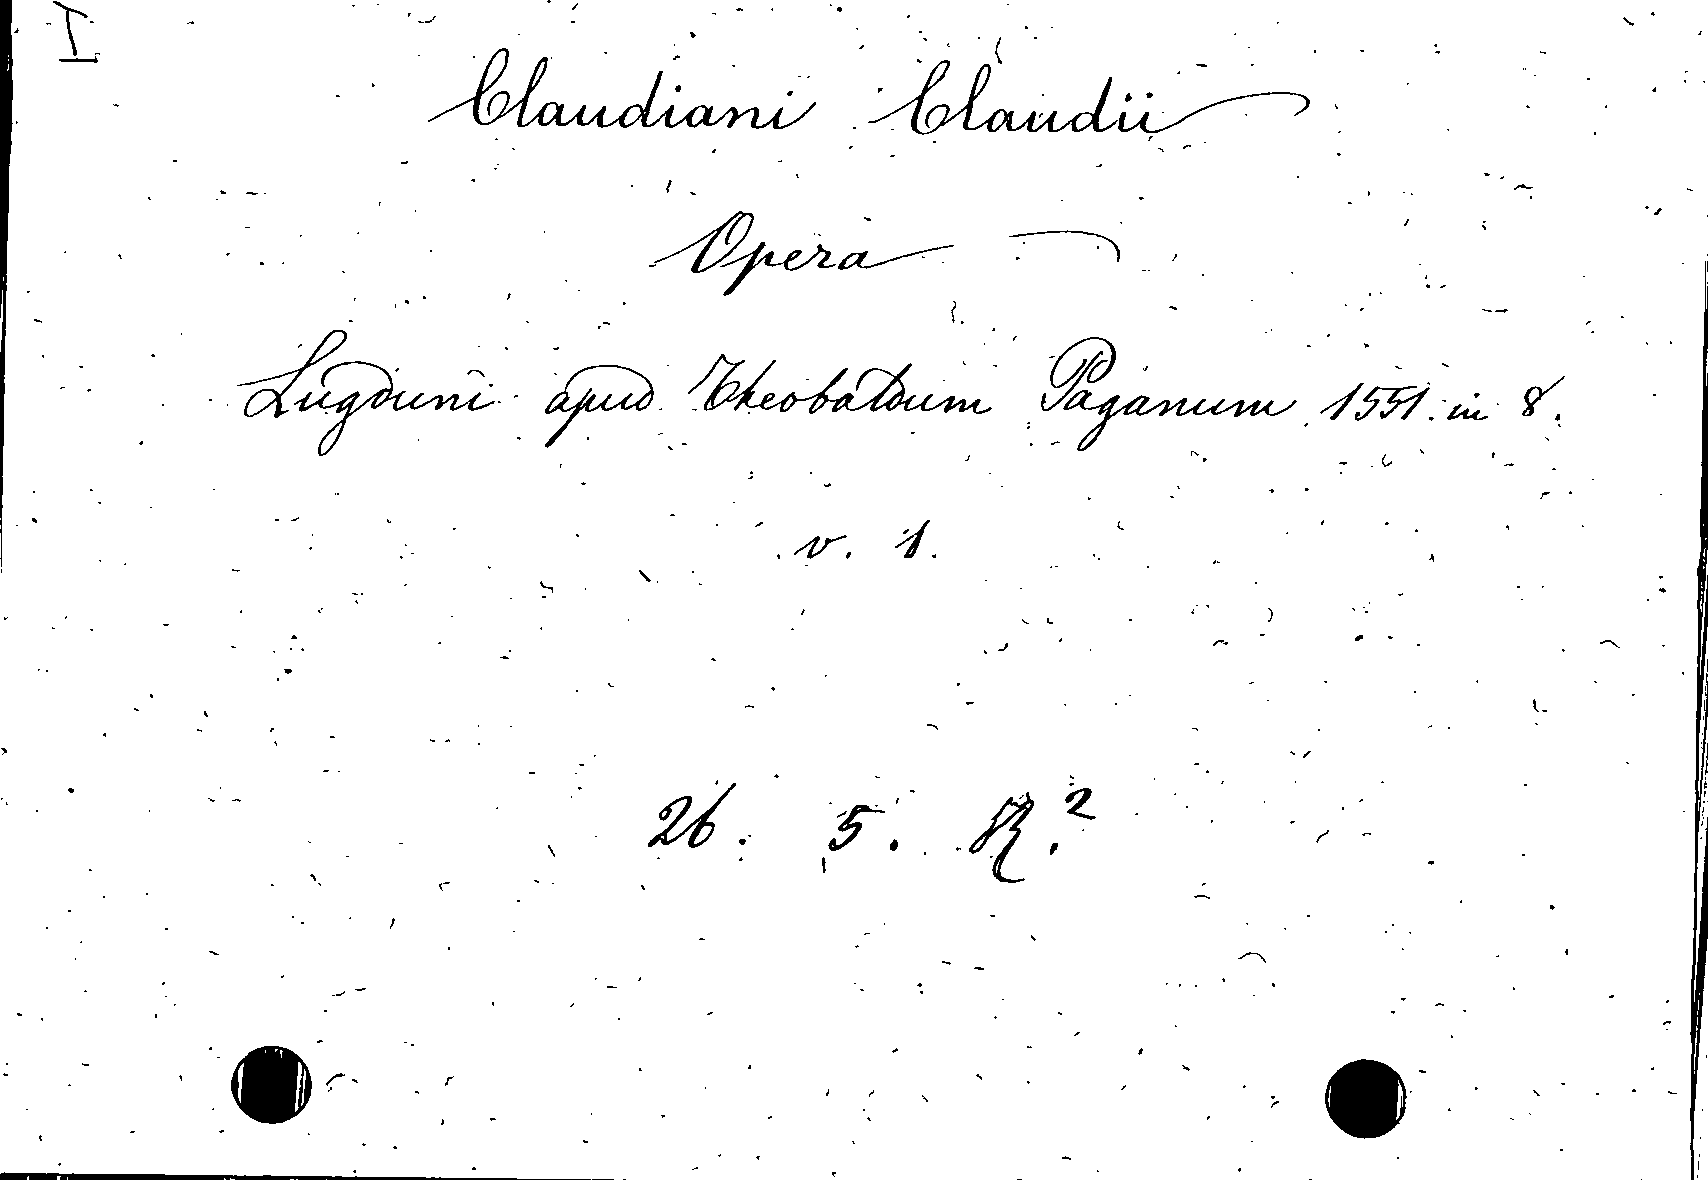 I
Claudiani Claudii
Opera
Lugduni apud Theobaldum Paganum 1551. in 8.
v. 1.
26. 5. K.²